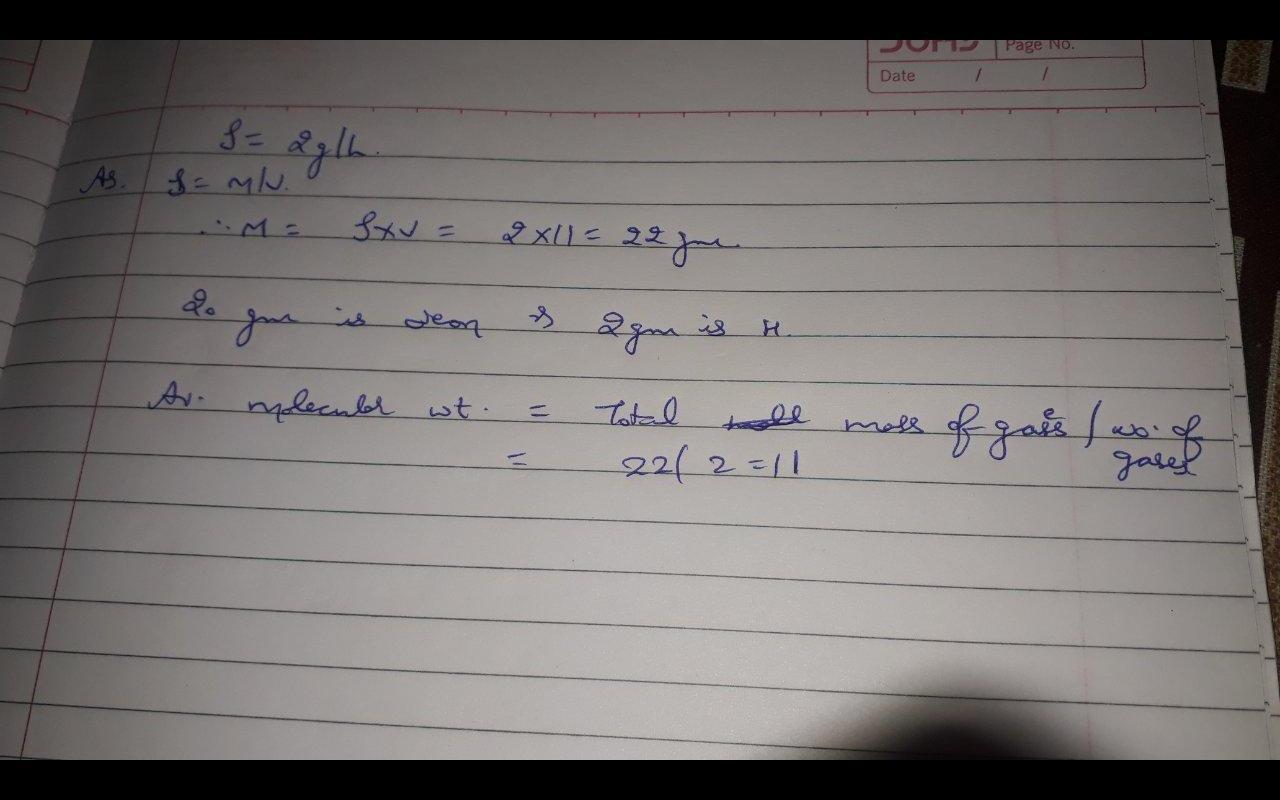 Page No.
Date / /
ρ = 2g/L.
As. ρ = M/V.
∴ M = ρ×V = 2×11 = 22 gm
20 gm is neon & 2gm is H.
Av. molecular wt. = Total mass of gases / no. of gases
= 22/2 = 11